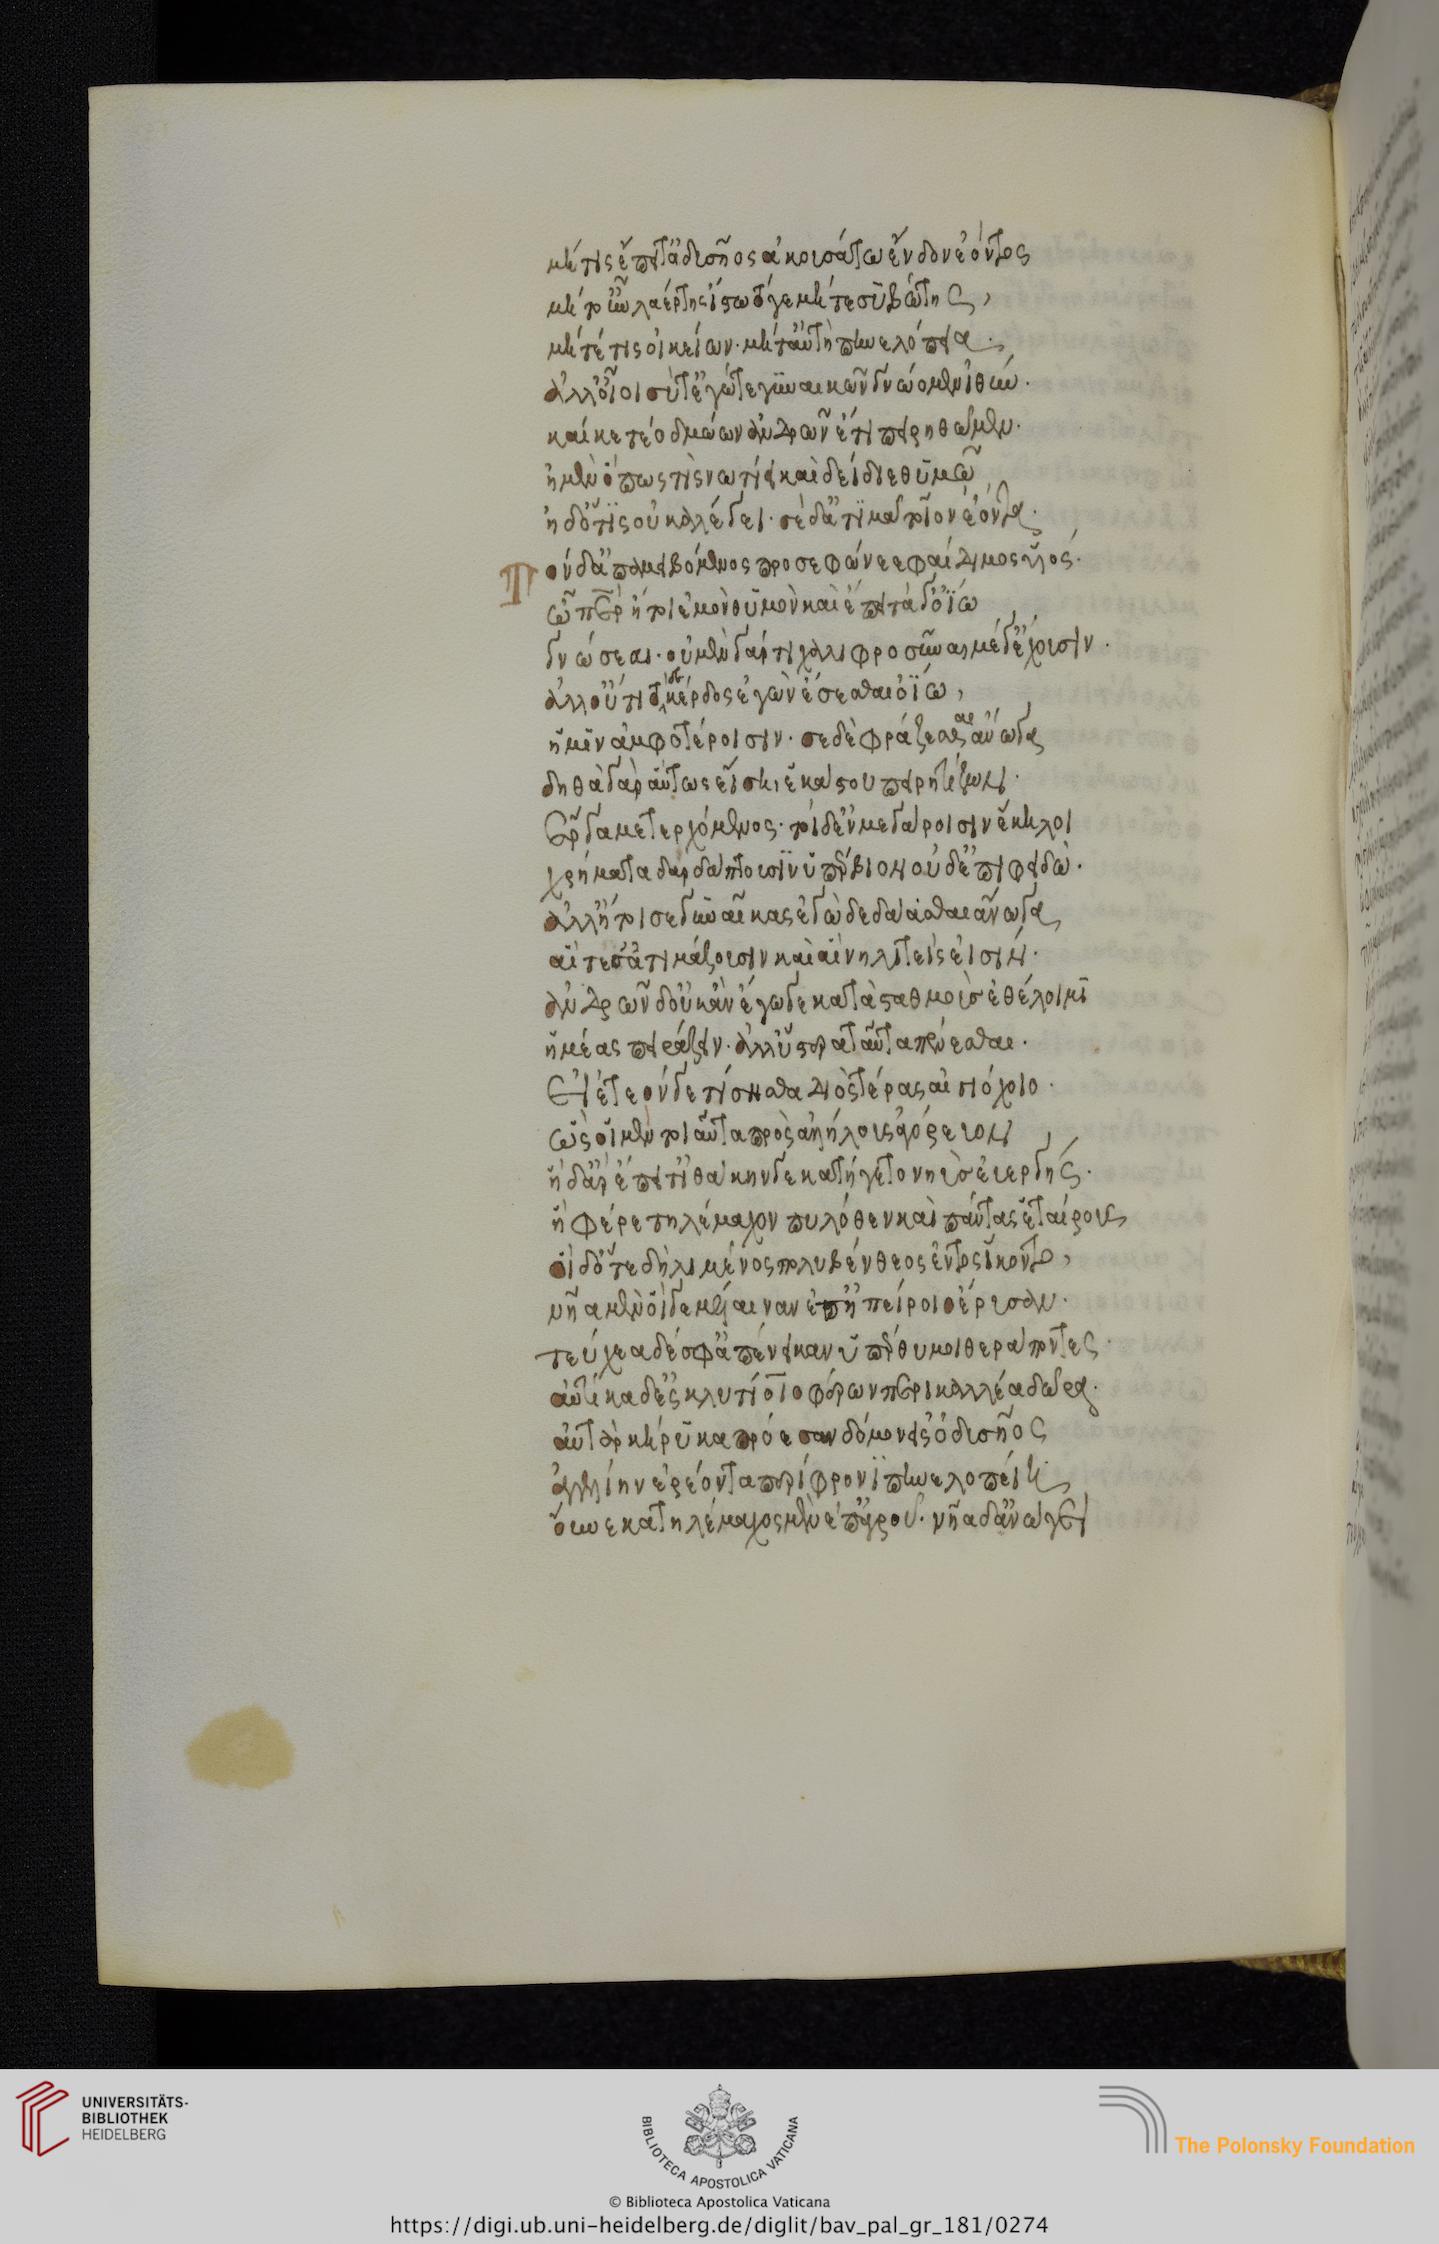 μήτις ἔπειτ' ὀδυσῆος ἀκουσάτω ἔνδον ἐόντος
μήτ' οὖν λαέρτης ἴστω τόγε μήτε συβώτης,
μήτέ τις οἰκείων· μήτ' αὐτὴ πηνελόπεια.
ἀλλ' οἶοι σύ τ' ἐγώ τε γυναικῶν γνώομεν ἰθύν·
καί κε τέο δμώων ἀνδρῶν ἔτι πειρηθῶμεν·
ἠμὲν ὅπως τις νῶϊ τίει καὶ δείδιε θυμῶ
ἠδ' ὅτις οὐκ ἀλέγει· σὲ δ' ἀτιμᾶ τοῖον ἐόντα·
Τὸν δ' ἀπαμειβόμενος προσεφώνεε φαίδιμος υἱός·
ὦ πάτερ ἤτοι ἐμὸν θυμὸν καὶ ἔπειτά γ' ὀΐω
γνώσεαι· οὐ μὲν γάρ τι χαλιφροσύναι μέ γ' ἔχουσιν·
ἀλλ' οὔτοι τόδε κέρδος ἐγὼν ἔσεσθαι ὀΐω,
ἡμῖν ἀμφοτέροισιν· σὲ δὲ φράζεσθαι ἄνωγα
δηθὰ γὰρ αὔτως εἴση ἑκάστου πειρητίζων·
ἔργα μετερχόμενος· τοὶ δ' ἐν μεγάροισιν ἕκηλοι
χρήματα δαρδάπτουσιν ὑπέρβιον οὐδ' ἔπι φειδώ·
ἀλλ' ἤτοι σε γυναῖκας ἐγὼ δεδάασθαι ἄνωγα,
αἵ τέ σ' ἀτιμάζουσιν καὶ αἳ νηλιτεῖς εἰσίν·
ἀνδρῶν δ' οὐκ ἂν ἔγωγε κατὰ σταθμοὺς ἐθέλοιμι
ἡμέας πειράζειν· ἀλλ' ὕστερα ταῦτα πένεσθαι·
εἰ ἐτεόν γέ τι οἶσθα διὸς τέρας αἰγιόχοιο·
ὣς οἱ μὲν τοιαῦτα πρὸς ἀλλήλους ἀγόρευον,
ἡ δ' ἄρ' ἔπειτ' ἰθάκηνδε κατήγετο νηῦς εὐεργής·
ἣ φέρε τηλέμαχον πυλόθεν καὶ πάντας ἑταίρους
οἱ δ' ὅτε δὴ λιμένος πολυβενθέος ἐντὸς ἵκοντο,
νῆα μὲν οἵγε μέλαιναν ἐπ' ἠπείροιο ἔρυσαν·
τεύχεα δέ σφ' ἀπένεικαν ὑπέρθυμοι θεράποντες·
αὐτίκα δ' ἐς κλυτίοιο φέρον περικαλλέα δῶρα·
αὐτὰρ κήρυκα πρόεσαν δόμον εἰς ὀδυσῆος
ἀγγελίην ἐρέοντα περίφρονι πηνελοπείη,
οὕνεκα τηλέμαχος μὲν ἐπ' ἀγροῦ· νῆα δ' ἀνώγει
UNIVERSITÄTS-
BIBLIOTHEK
HEIDELBERG
BIBLIOTECA APOSTOLICA VATICANA
The Polonsky Foundation
© Biblioteca Apostolica Vaticana
https://digi.ub.uni-heidelberg.de/diglit/bav_pal_gr_181/0274